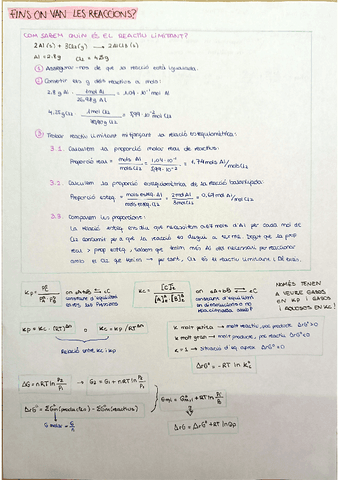 FINS ON VAN LES REACCIONS?
COM SABEM QUIN ÉS EL REACTIU LIMITANT?
2Al(s) + 3Cl2(g) → 2AlCl3(s)
Al = 2.8g Cl2 = 4.25g
① Assegurar-nos de que la reacció està igualada.
② Convertir els g dels reactius a mols:
2.8 g Al · 1mol Al / 26.98g Al = 1.04·10⁻¹ mol Al
4.25g Cl2 · 1mol Cl2 / 70.90g Cl2 = 5.99·10⁻² mol Cl2
③ Trobar reactiu limitant mitjançant la reacció estequiomètrica:
3.1. Calculem la proporció molar real de reactius:
Proporció real = mols Al / mols Cl2 = 1,04·10⁻¹ / 5.99·10⁻² = 1,74 mols Al / mol Cl2
3.2. Calculem la proporció estequiomètrica de la reacció balancejada:
Proporció esteq = mols esteq. Al / mols esteq. Cl2 = 2mol Al / 3mol Cl2 = 0,67 mol Al / mol Cl2
3.3. Comparem les proporcions:
La reacció ens diu que necessitem 0.67 mols d'Al per cada mol de
Cl2 per a que la reacció es dugui a terme. Degut que la prop
real > prop esteq, sabem que tenim més Al del necessari per reaccionar
amb el Cl2 que tenim → per tant, Cl2 és el reactiu limitant i Al excés.
Kp = on aA+bB ⇌ cC
constant d'equilibri
Kc = [C]ᶜ / [A]ᵃ·[B]ᵇ on aA+bB ⇌ cC
constant d'equilibri
NOMÉS TENEN
A VEURE GASOS
EN KP I GASOS
I AQUOSOS EN KC!
Kp = Kc·(RT)^Δn o Kc = Kp/RT^Δn
Relació entre Kc i Kp
K molt petita → molt reactiu, poc producte ΔrG°>0
K molt gran → molt producte, poc reactiu ΔrG°<0
K = 1 → situació d'eq. aprox ΔrG°≈0
ΔrG° = -RT ln K
ΔG = nRT ln P2/P1 → G2 = G1 + nRT ln P2/P1
ΔrG° = ΣGm(productes) - ΣGm(reactius)
G molar = G/n
ΔrG = ΔrG° + RT lnQp